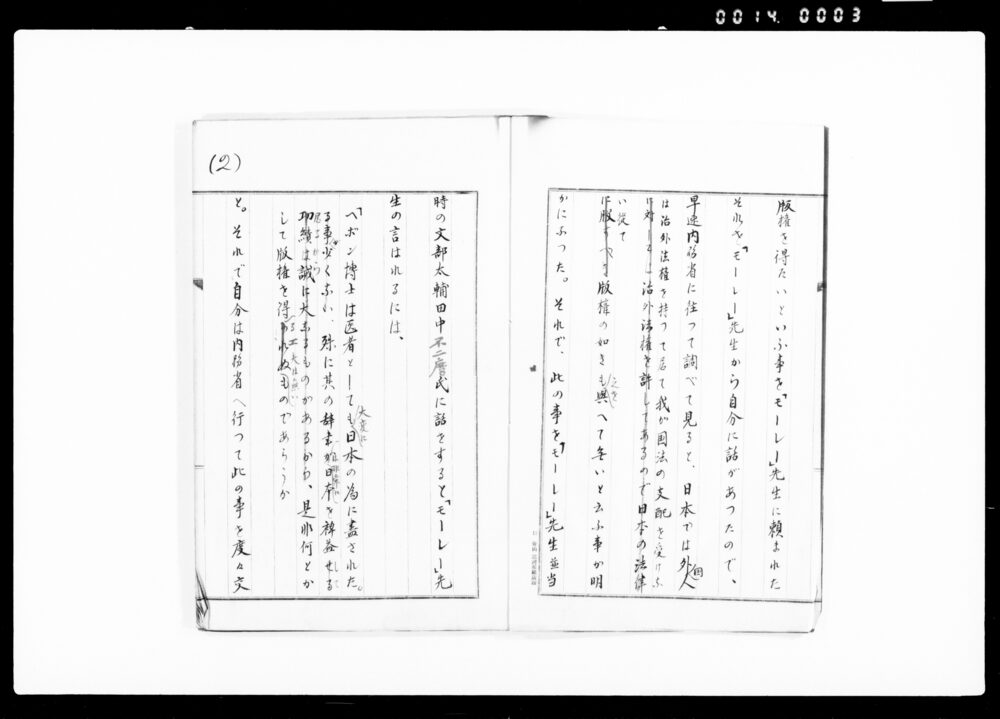 0014. 0003
版権を得たいといふ事を「モーレー」先生に頼まれた
それを「モーレー」先生から自分に話があつたので、
早速内務省に往つて調べて見ると、日本では外国人
は治外法権を持つて居て我が国法の支配を受けぬ
に対し 治外法権を許してあるので日本の法律
い従て
に服すべき版権の如きも与へて無いと云ふ事が明
かになつた。それで、此の事を「モーレー」先生並当
(2)
時の文部太輔田中不二麿氏に話をすると「モーレー」先
生の言はれるには、
「ヘボン博士は医者としても日本の為に大変に盡された。
る事少くない、殊に其の辞書が日本を裨益せる
功績は誠に大なるものがあるから、是非何とか
して版権を得る工夫はないものであらうか
と。それで自分は内務省へ行つて此の事を度々交